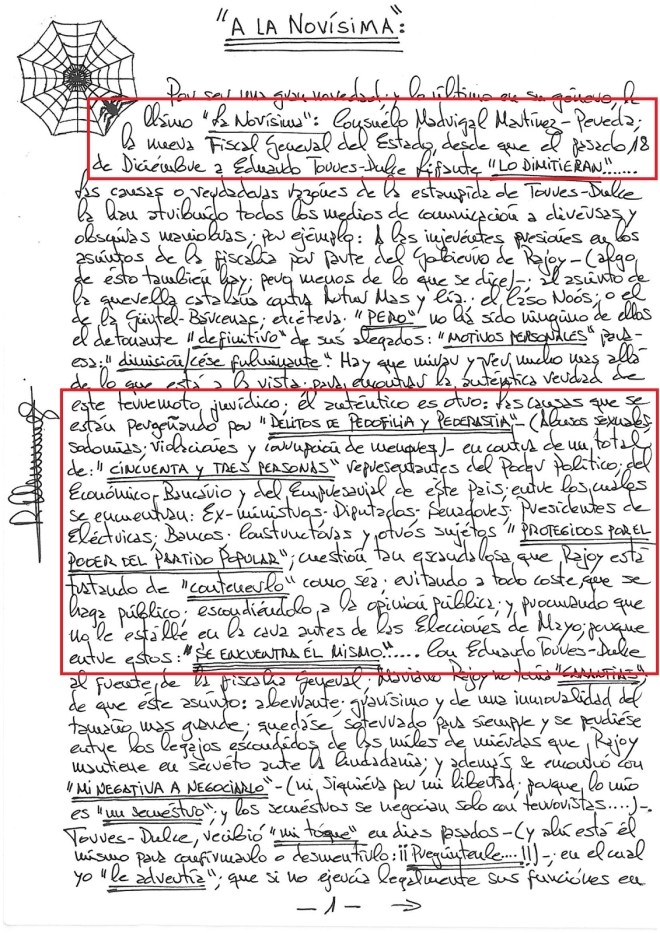 "A LA NOVÍSIMA":
Por ser una gran novedad; y lo último en su género, le
llamo "La Novísima": Consuelo Madrigal Martínez-Pereda;
la nueva Fiscal General del Estado, desde que el pasado 18
de Diciémbre a Eduardo Torres-Dulce Lifante "LO DIMITIERAN"......
Las causas o verdadéras razónes de la estampida de Torres-Dulce
la han atribuido todos los medios de comunicación a diversas y
obscúras maniobras; por ejémplo: A las injeréntes presiónes en los
asúntos de la fiscalía por parte del Gobiérno de Rajoy -(algo
de ésto también hay; pero menos de lo que se dice)-; al asúnto de
la querella catalana contra Artur Mas y Cía.; el Caso Noós; o el
de la Gürtel-Bárcenas; etcétera. "PERO" no há sido ningúno de ellos
el detonante "definitivo" de sus alegados: "MOTIVOS PERSONALES" para
esa: "dimisión/cése fulminante". Hay que mirar y ver mucho mas allá
de lo que está a la vista; para encontrar la auténtica verdad de
este terremoto jurídico; él auténtico es otro: Las causas que se
están pergeñando por "DELITOS DE PEDOFILIA Y PEDERASTIA"- (Abusos sexuales,
sodomías, violaciónes y corrupción de menores)- en contra de un total
de: "CINCUENTA Y TRES PERSONAS" representantes del Poder Político; del
Económico-Bancário y del Empresarial de éste País; entre los cuales
se encuentran: Ex-ministros-Diputados-Senadores, Presidentes de
Eléctricas, Bancos, Constructóras y otrós sujétos "PROTEGIDOS POR EL
PODER DEL PARTIDO POPULAR"; cuestión tan escandalosa que Rajoy está
tratando de "contenerlo" como séa; evitando a todo coste, que se
haga público; escondiéndolo a la opinión pública; y procurando que
no le estálle en la cara antes de las Elecciónes de Mayo; porque
entre estos: "SE ENCUENTRA ÉL MISMO"...... Con Eduardo Torres-Dulce
al frente, de la Fiscalía General; Mariano Rajoy no tenía "GARANTÍAS",
de que este asunto: aberrante, gravísimo y de una inmoralidad del
tamaño mas grande; quedáse soterrado para siempre y se perdiése
entre los legajos escondidos de las miles de miérdas que Rajoy
mantiene en secréto ante la Ciudadanía; y además se encontró con
"MI NEGATIVA A NEGOCIARLO" -(ni siquiéra por mi libertad; porque lo mío
es "un secuéstro"; y los secuéstros se negocian solo con terroristas....)-.
Torres-Dulce, recibió "mi tóque" en días pasados -(y ahí está él
mismo para confirmarlo o desmentirlo: ¡¡Pregúntenle....!!)-; en el cual
yo "le advertía"; que si no ejercía legalmente sus funciónes en
- 1 - →